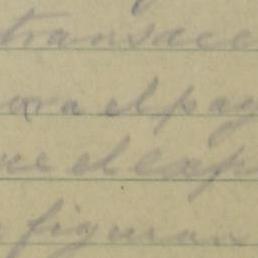 transacc
ora el pag
ue el exp
figuran